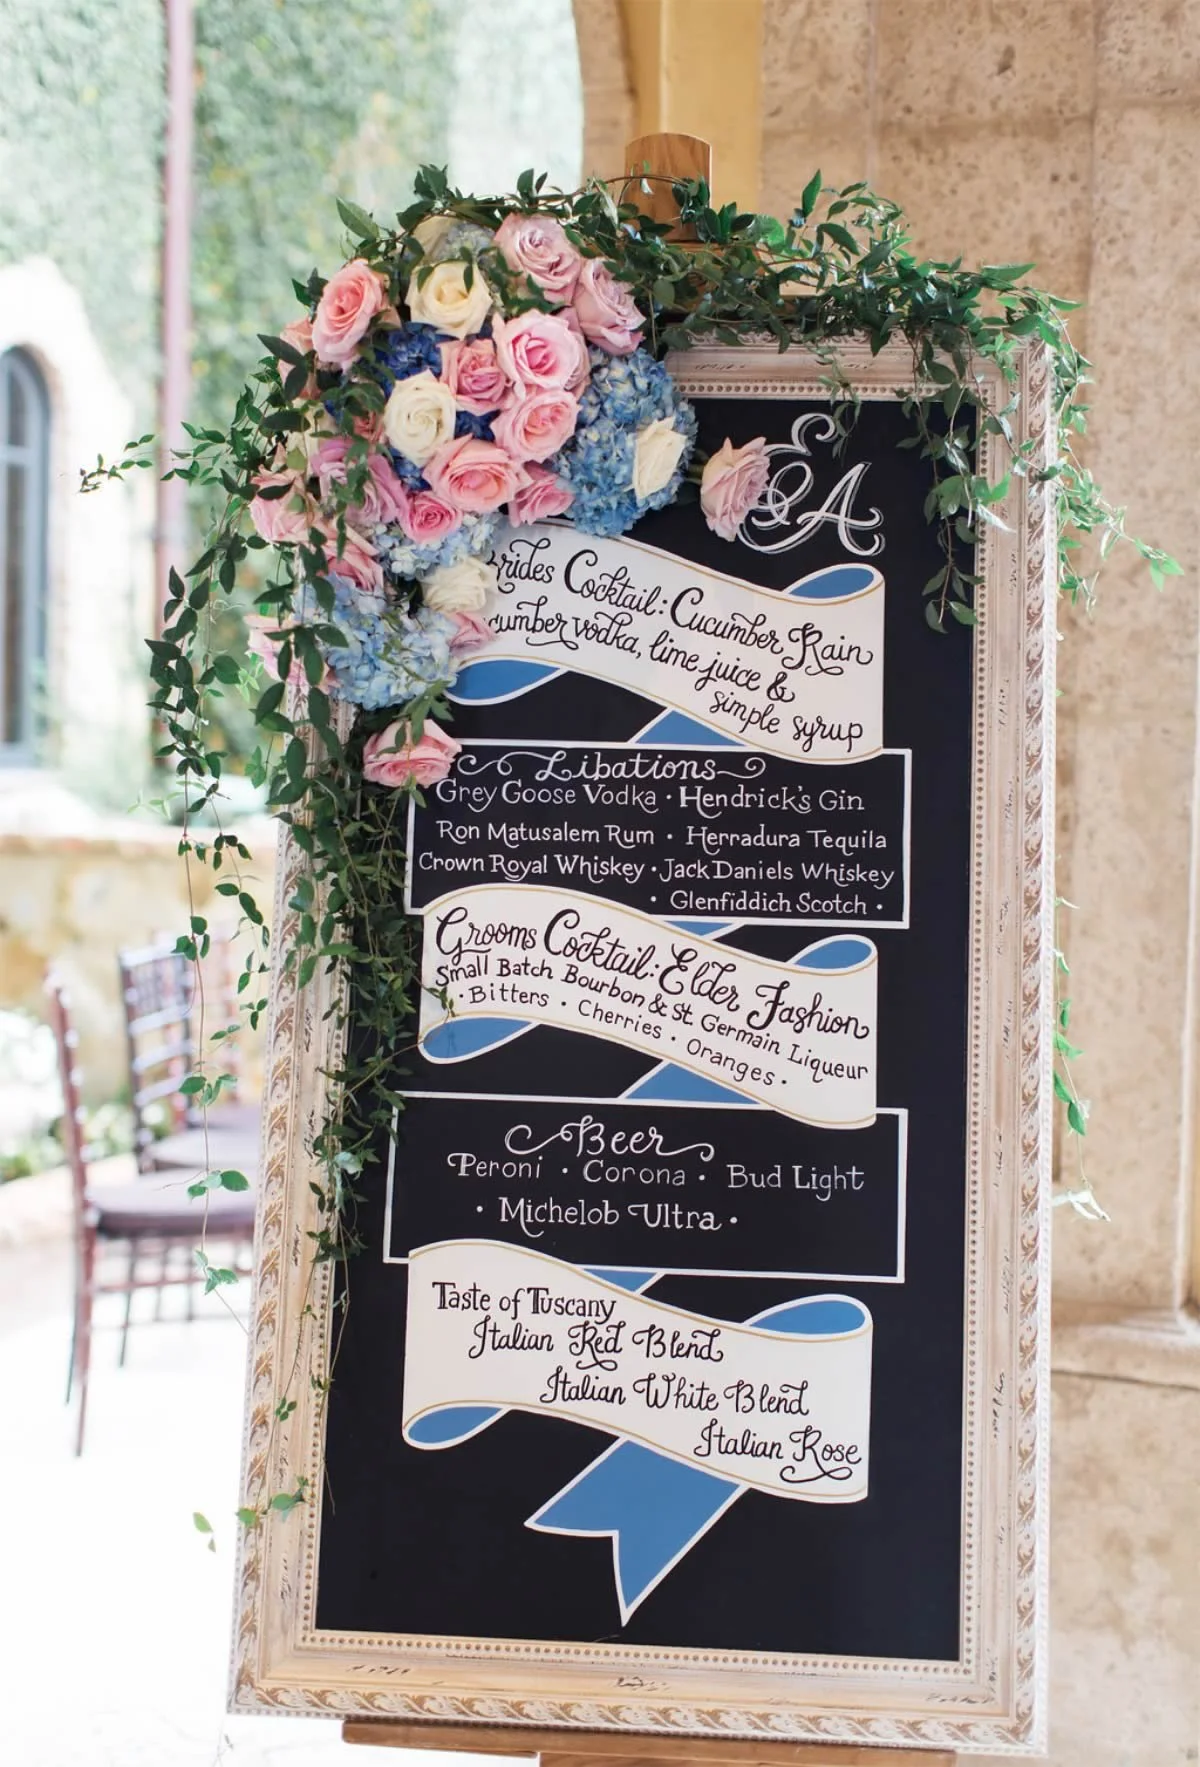 E
& A
Brides Cocktail: Cucumber Rain
Cucumber vodka, lime juice &
simple syrup
Libations
Grey Goose Vodka · Hendrick's Gin
Ron Matusalem Rum · Herradura Tequila
Crown Royal Whiskey · Jack Daniels Whiskey
· Glenfiddich Scotch ·
Grooms Cocktail: Elder Fashion
Small Batch Bourbon & St. Germain Liqueur
· Bitters · Cherries · Oranges ·
Beer
Peroni · Corona · Bud Light
· Michelob Ultra ·
Taste of Tuscany
Italian Red Blend
Italian White Blend
Italian Rose